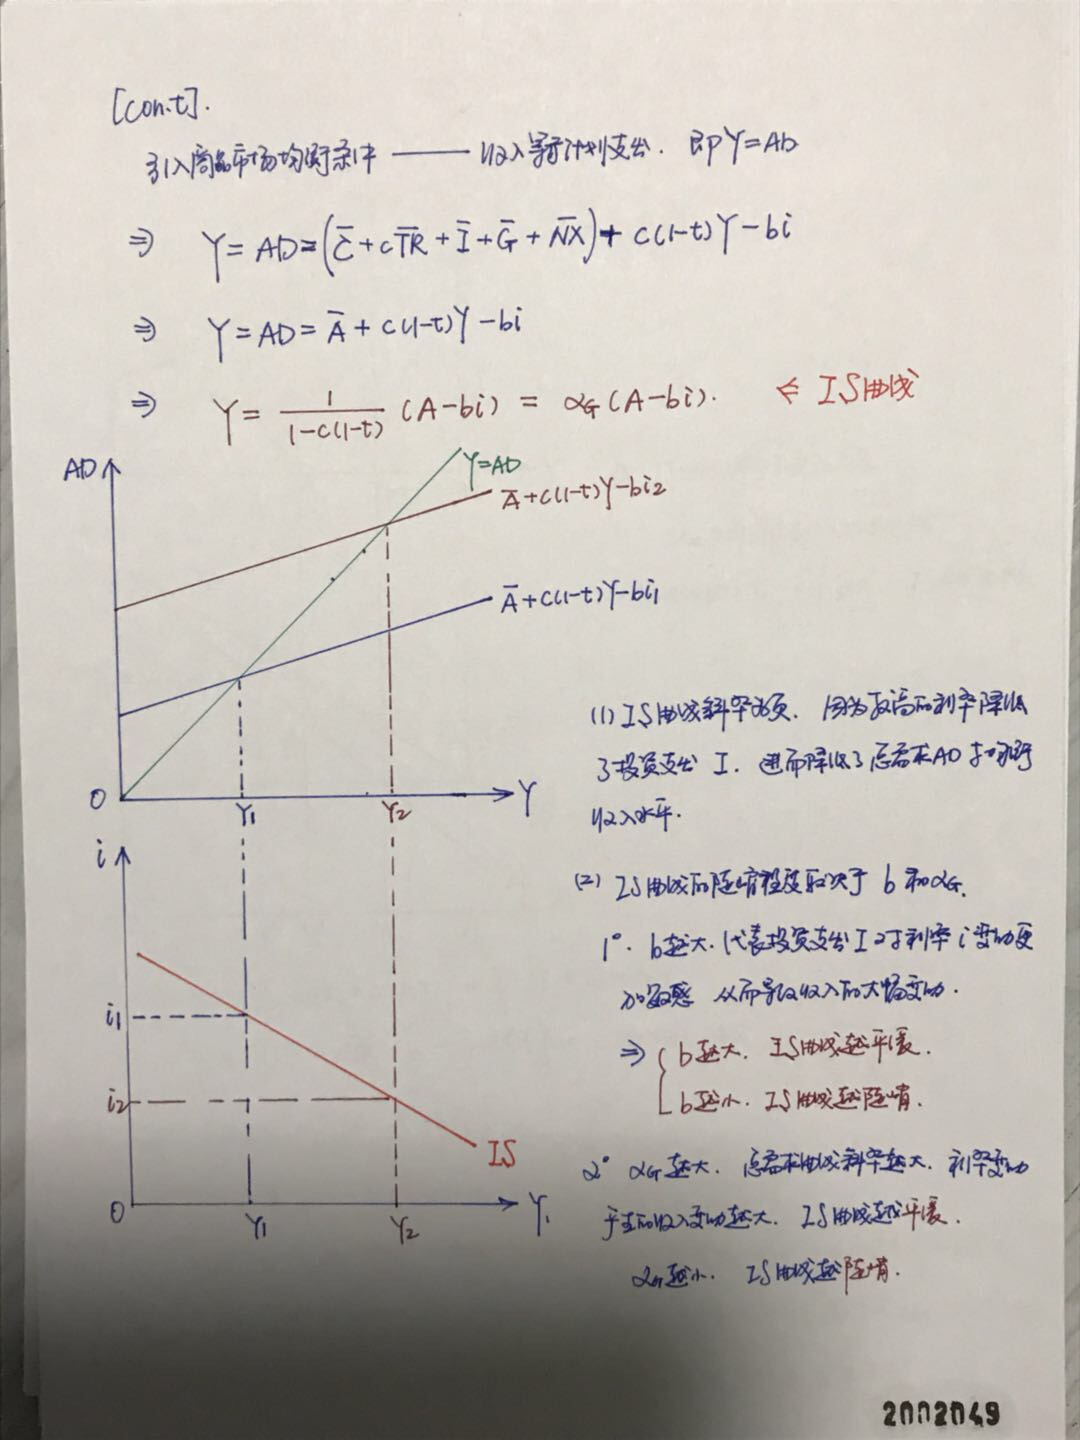 [con.t].
引入商品市场均衡条件 —— 收入等于计划支出. 即Y=AD
⇒ Y=AD=(C̅+cT̅R̅+I̅+G̅+N̅X̅)+c(1-t)Y-bi
⇒ Y=AD=A̅+c(1-t)Y-bi
⇒ Y= 1/(1-c(1-t)) (A-bi) = αG(A-bi). ⇐ IS曲线
AD
Y=AD
A̅+c(1-t)Y-bi2
A̅+c(1-t)Y-bi1
O
Y1
Y2
Y
(1) IS曲线斜率为负. 因为较高的利率降低
了投资支出 I. 进而降低了总需求AD 与均衡
收入水平.
i
(2) IS曲线的陡峭程度取决于 b 和αG.
1°. b越大. 代表投资支出I对利率i变动更
加敏感 从而导致收入的大幅变动.
⇒ { b越大. IS曲线越平缓.
b越小. IS曲线越陡峭.
i1
i2
IS
2° αG越大. 总需求曲线斜率越大. 利率变动
产生的收入变动越大. IS曲线越平缓.
αG越小. IS曲线越陡峭.
O
Y1
Y2
Y.
2002049